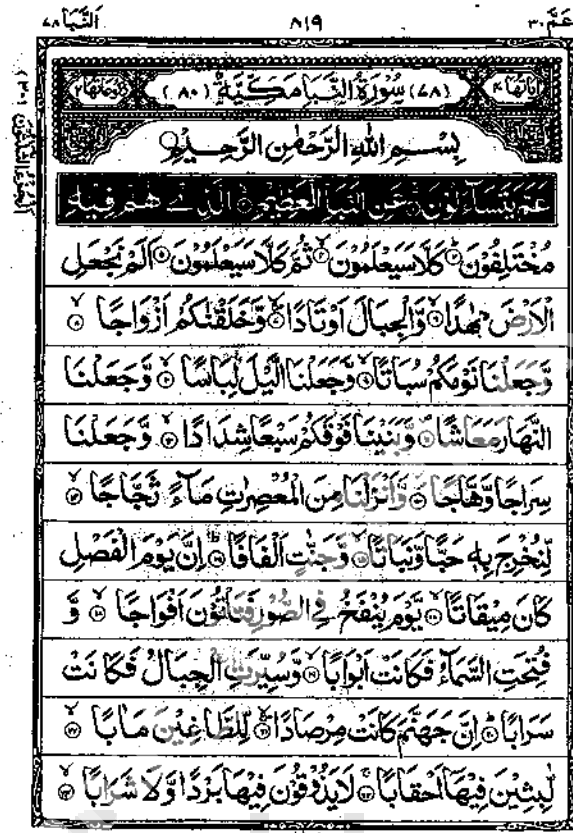 عَمَّ ٣٠ ٨١٩ اَلنَّبَا ٧٨
اٰیَاتُهَا ٤٠ (٧٨) سُوْرَةُ النَّبَاِ مَكِّیَّةٌ (٨٠) رُكُوْعَاتُهَا ٢
بِسْمِ اللّٰهِ الرَّحْمٰنِ الرَّحِیْمِ
عَمَّ یَتَسَآءَلُوْنَ ۝١ عَنِ النَّبَاِ الْعَظِیْمِ ۝٢ الَّذِیْ هُمْ فِیْهِ
مُخْتَلِفُوْنَ ۝٣ كَلَّا سَیَعْلَمُوْنَ ۝٤ ثُمَّ كَلَّا سَیَعْلَمُوْنَ ۝٥ اَلَمْ نَجْعَلِ
الْاَرْضَ مِهٰدًا ۝٦ وَّالْجِبَالَ اَوْتَادًا ۝٧ وَّخَلَقْنٰكُمْ اَزْوَاجًا ۝٨
وَّجَعَلْنَا نَوْمَكُمْ سُبَاتًا ۝٩ وَّجَعَلْنَا الَّیْلَ لِبَاسًا ۝١٠ وَّجَعَلْنَا
النَّهَارَ مَعَاشًا ۝١١ وَّبَنَیْنَا فَوْقَكُمْ سَبْعًا شِدَادًا ۝١٢ وَّجَعَلْنَا
سِرَاجًا وَّهَّاجًا ۝١٣ وَّاَنْزَلْنَا مِنَ الْمُعْصِرٰتِ مَآءً ثَجَّاجًا ۝١٤
لِّنُخْرِجَ بِهٖ حَبًّا وَّنَبَاتًا ۝١٥ وَّجَنّٰتٍ اَلْفَافًا ۝١٦ اِنَّ یَوْمَ الْفَصْلِ
كَانَ مِیْقَاتًا ۝١٧ یَّوْمَ یُنْفَخُ فِی الصُّوْرِ فَتَاْتُوْنَ اَفْوَاجًا ۝١٨ وَّ
فُتِحَتِ السَّمَآءُ فَكَانَتْ اَبْوَابًا ۝١٩ وَّسُیِّرَتِ الْجِبَالُ فَكَانَتْ
سَرَابًا ۝٢٠ اِنَّ جَهَنَّمَ كَانَتْ مِرْصَادًا ۝٢١ لِّلطَّاغِیْنَ مَاٰبًا ۝٢٢
لّٰبِثِیْنَ فِیْهَاۤ اَحْقَابًا ۝٢٣ لَا یَذُوْقُوْنَ فِیْهَا بَرْدًا وَّلَا شَرَابًا ۝٢٤